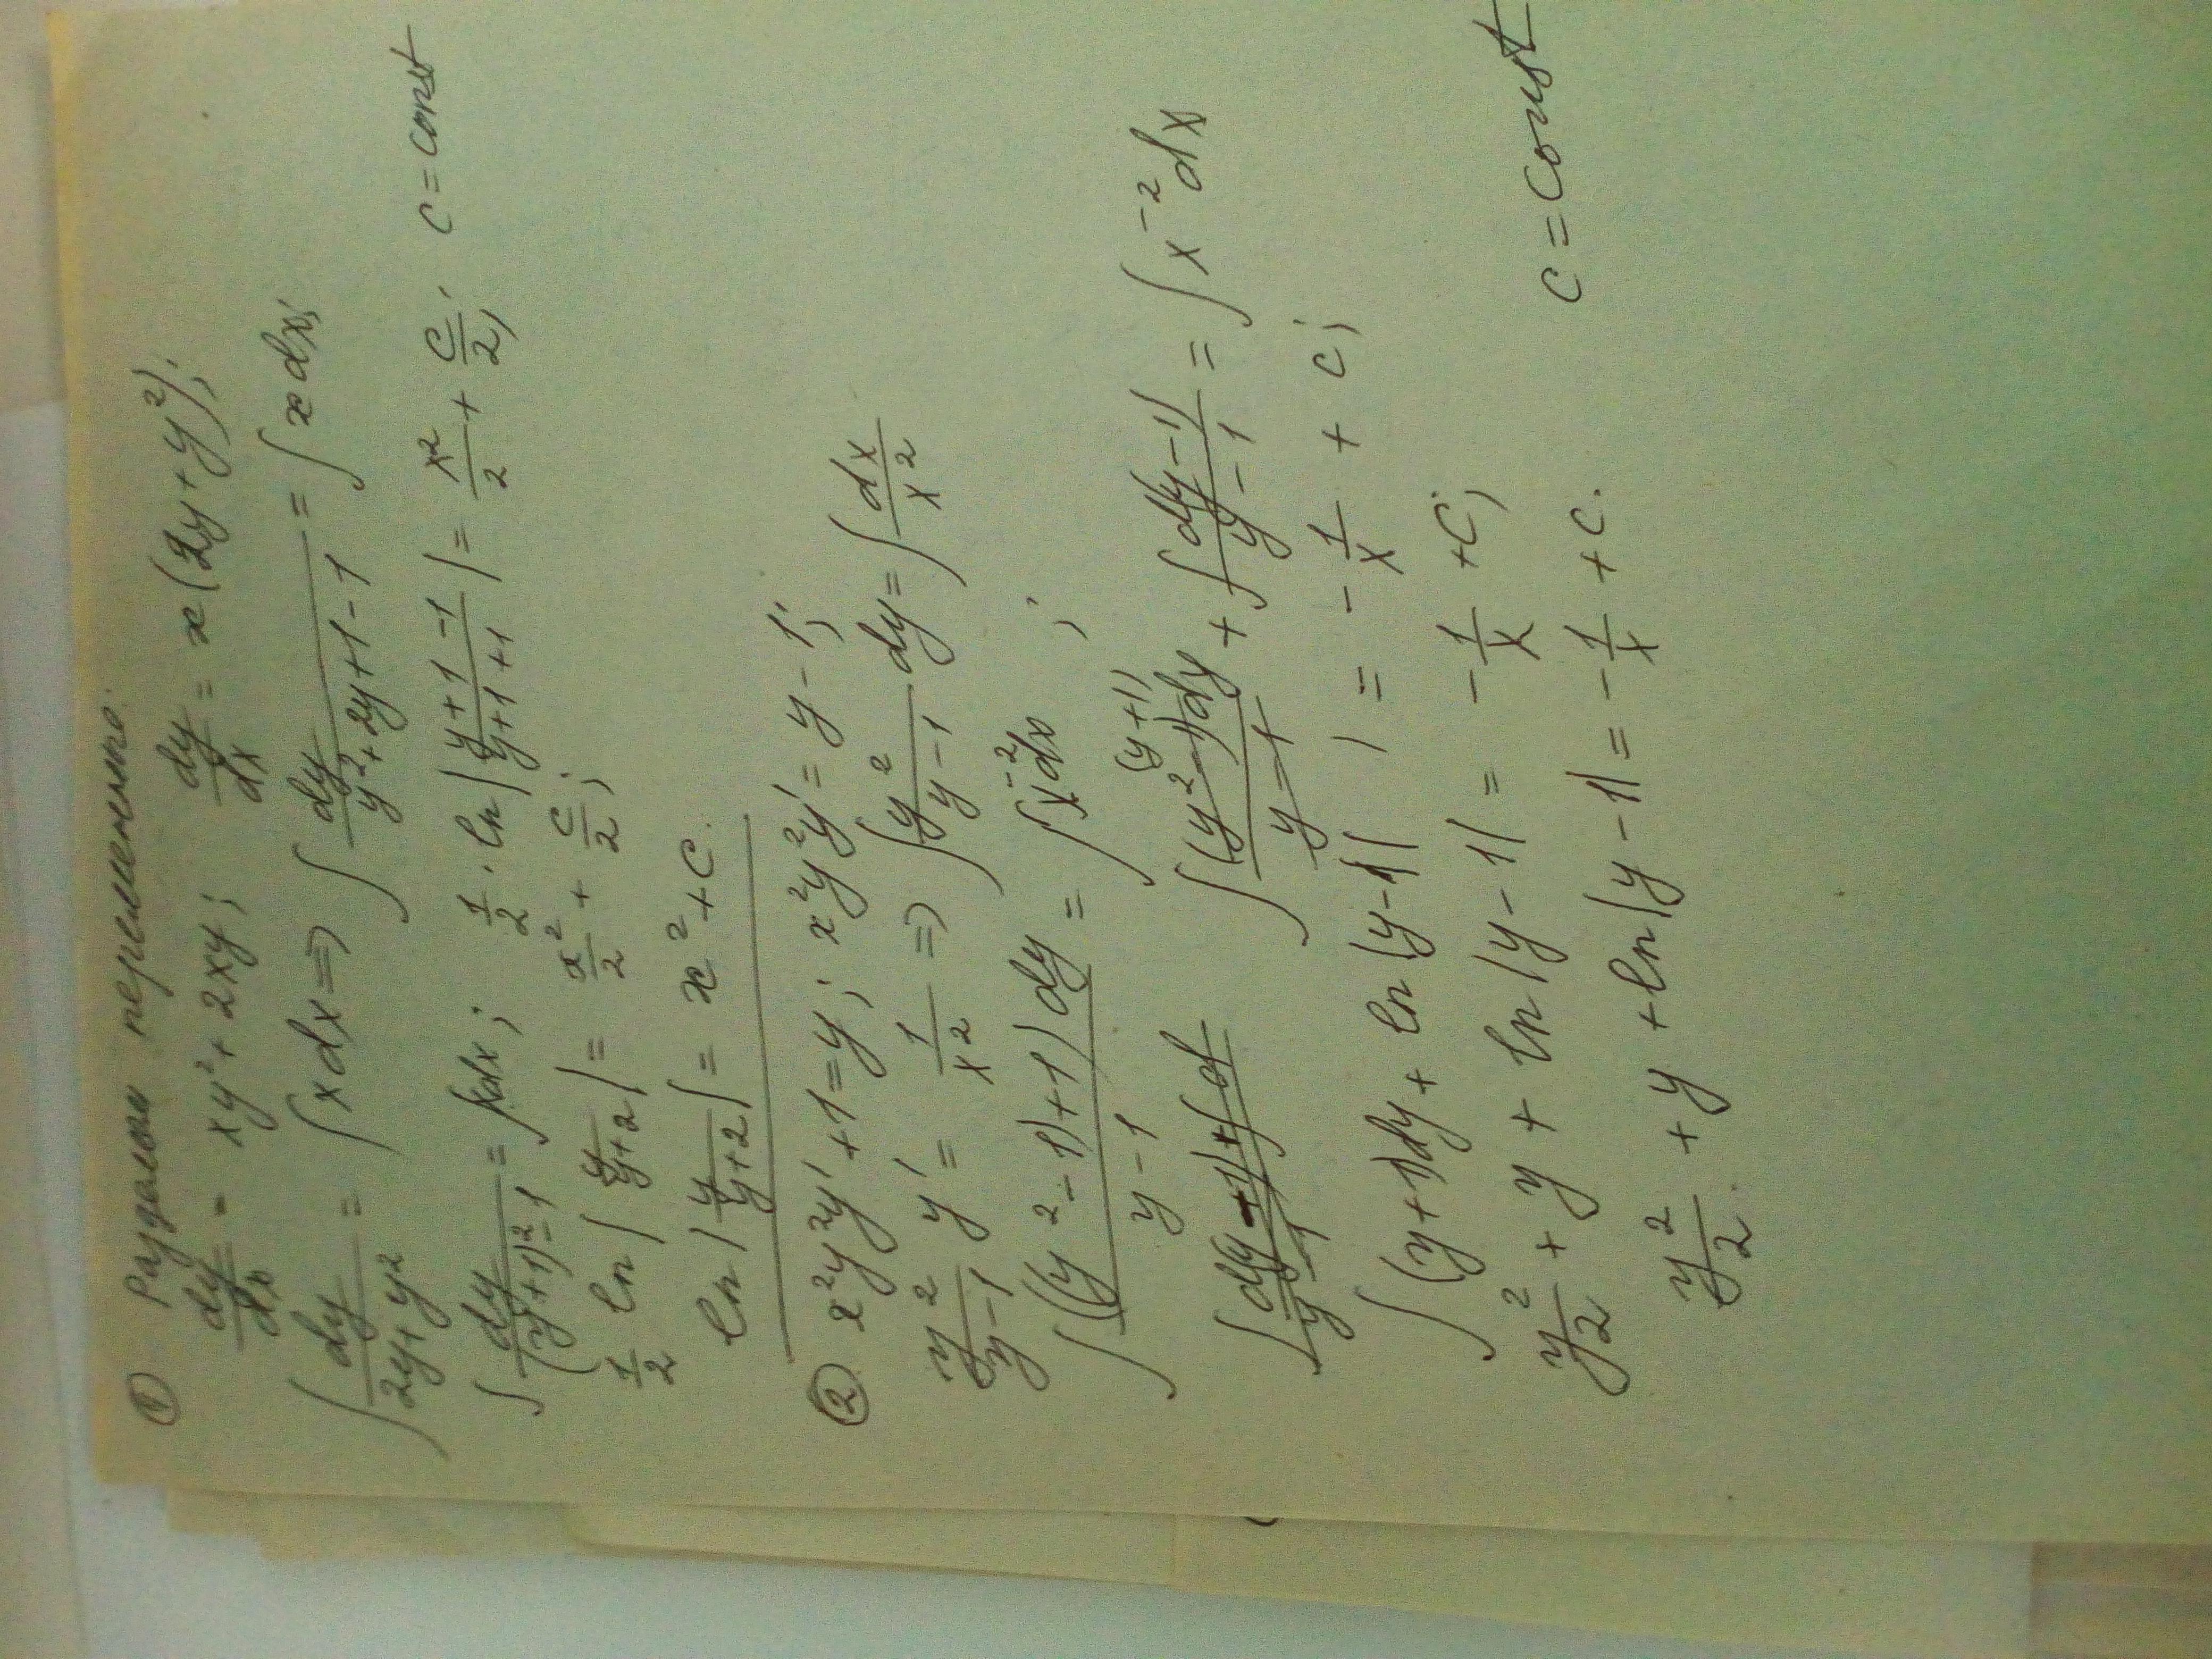 ① Разделяем переменные.
dy/dx = xy² + 2xy; dy/dx = x(2y + y²);
∫ dy/(2y + y²) = ∫ x dx ⇒ ∫ dy/(y² + 2y + 1 - 1) = ∫ x dx;
∫ dy/((y + 1)² - 1) = ∫ x dx; 1/2 · ln | (y + 1 - 1)/(y + 1 + 1) | = x²/2 + c/2; c = const
1/2 ln | y/(y + 2) | = x²/2 + c/2;
ln | y/(y + 2) | = x² + c.
② x²y²y' + 1 = y; x²y²y' = y - 1;
y²/(y - 1) y' = 1/x² ⇒ ∫ y²/(y - 1) dy = ∫ dx/x²
∫ ((y² - 1) + 1) dy/(y - 1) = ∫ x⁻² dx ;
∫ (y² - 1) dy/(y - 1) (y + 1) + ∫ d(y - 1)/(y - 1) = ∫ x⁻² dx
∫ (y + 1) dy + ln |y - 1| = - 1/x + c;
y²/2 + y + ln |y - 1| = - 1/x + c;
y²/2 + y + ln |y - 1| = - 1/x + c. c = const